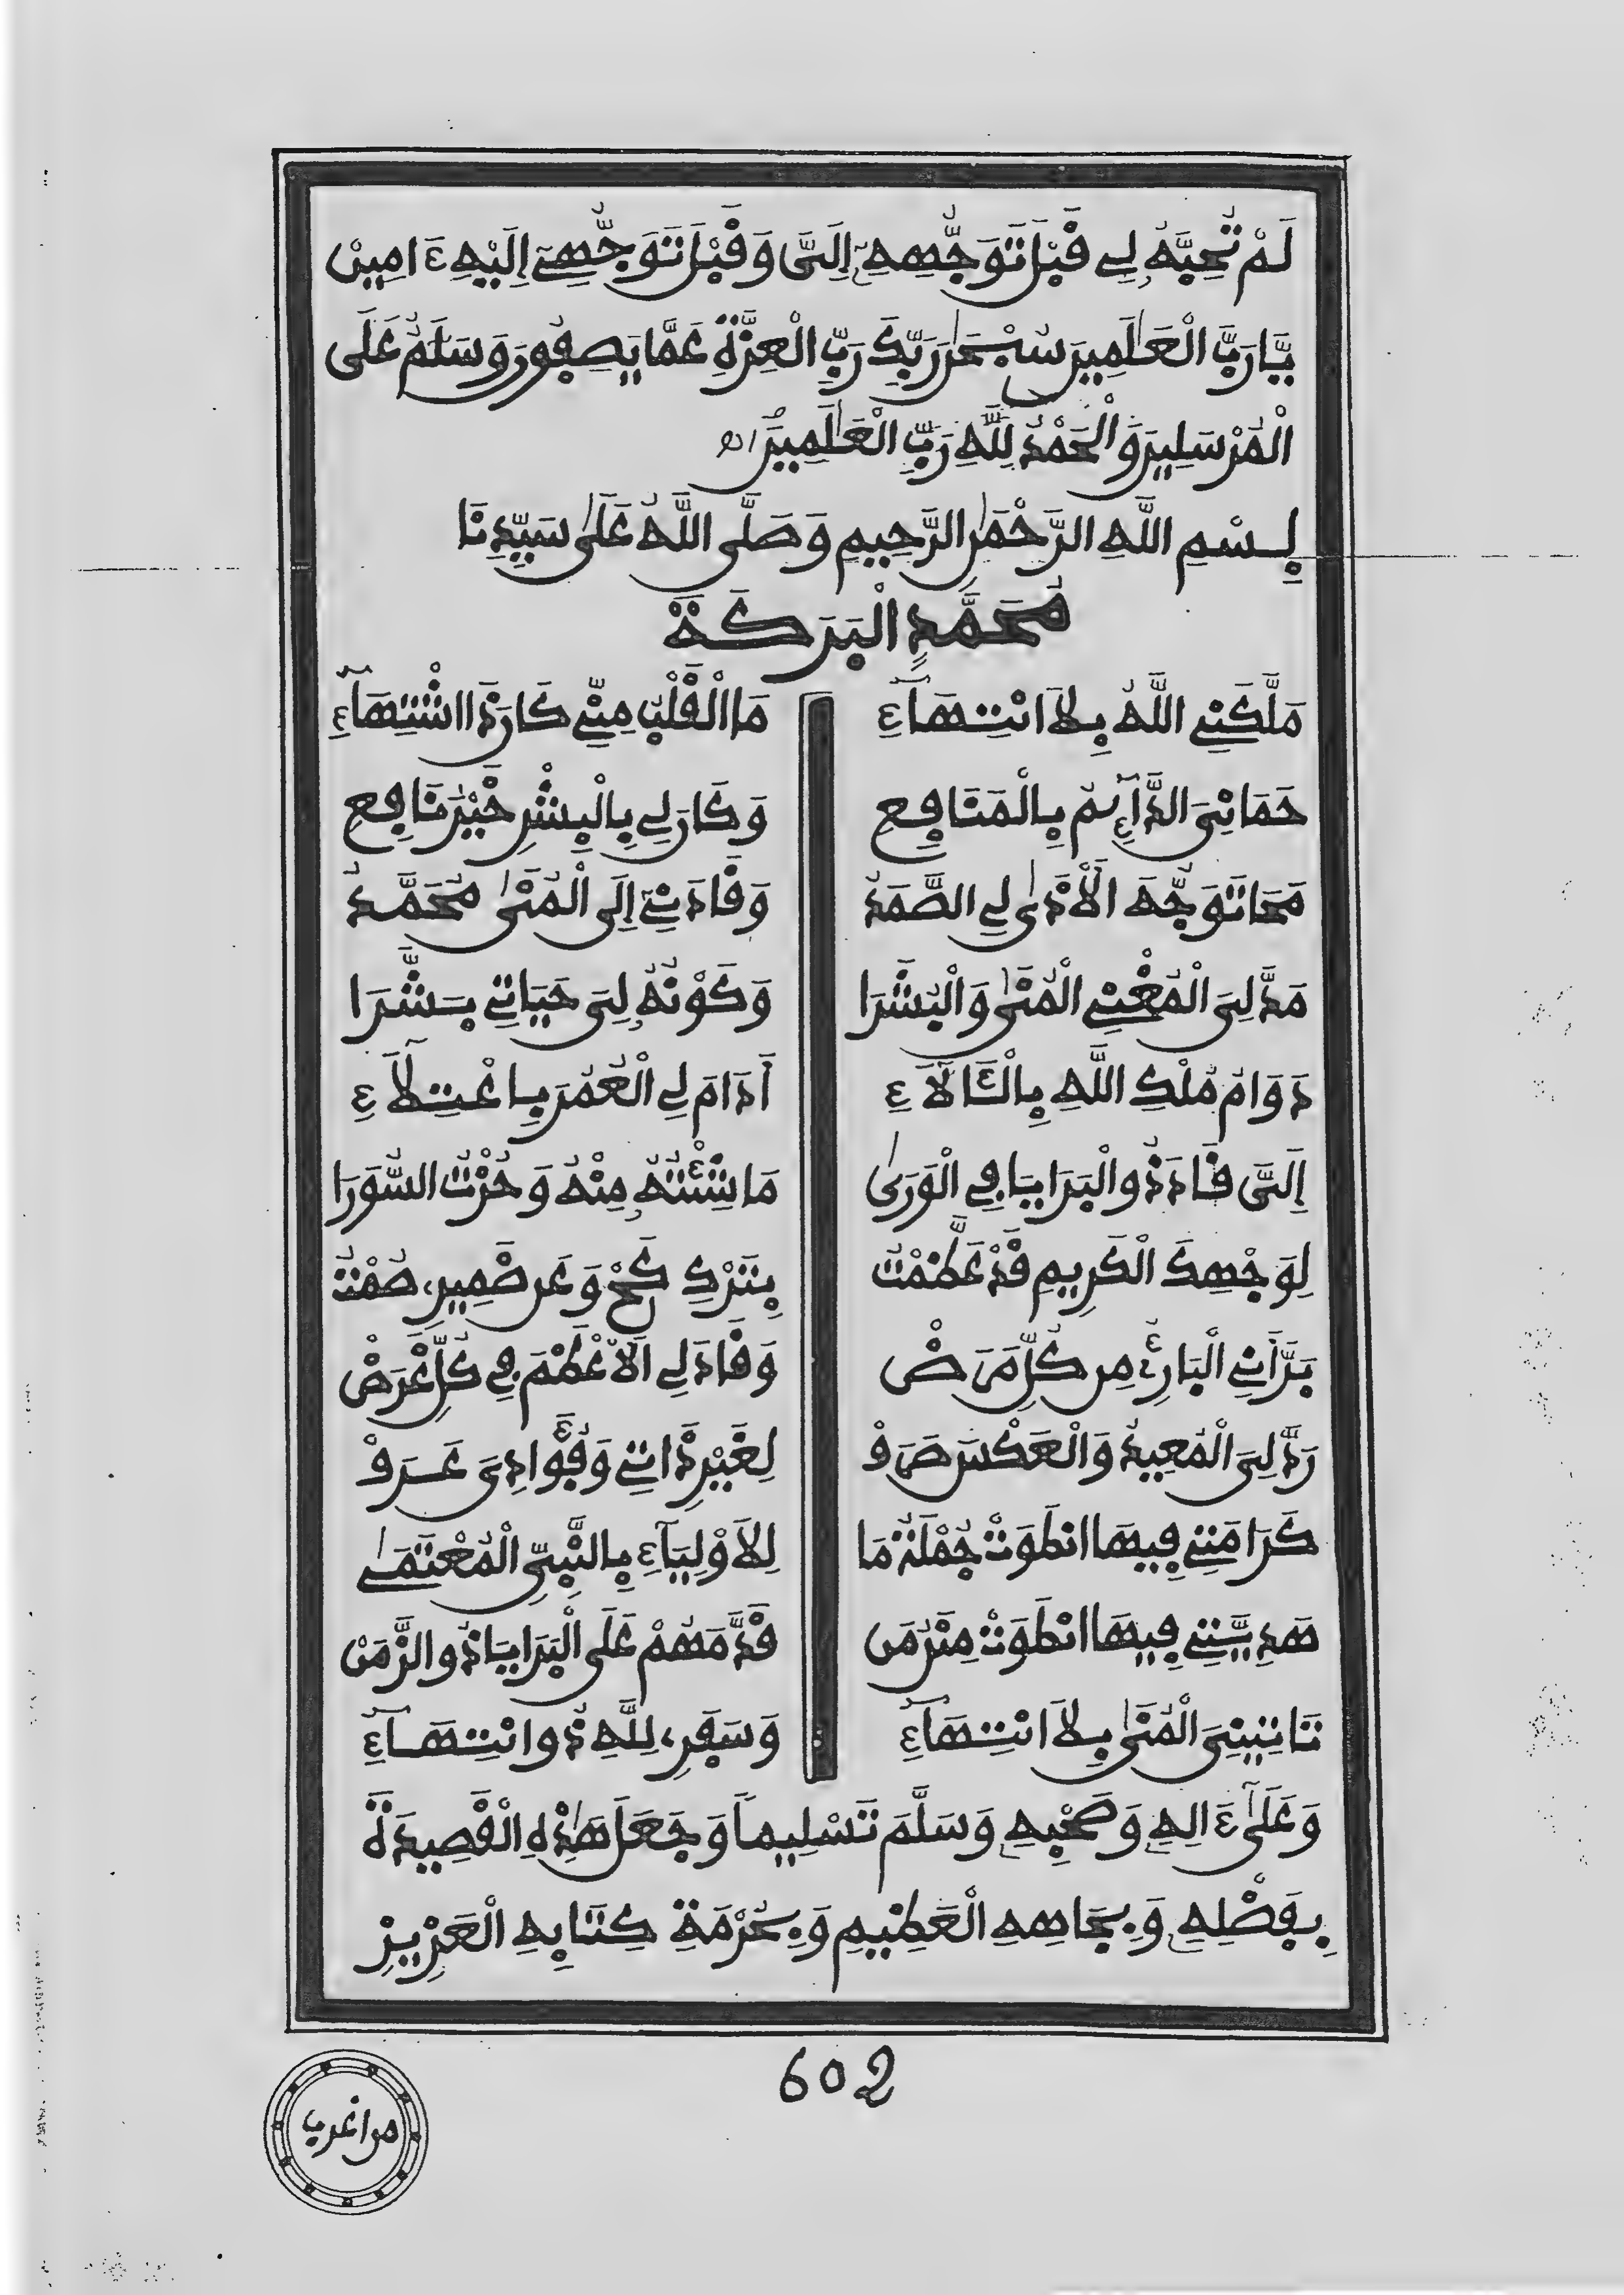 لَمْ تُحِبَّهُ لِي قَبْلَ تَوَجُّهِهِ إِلَيَّ وَقَبْلَ تَوَجُّهِي إِلَيْهِ ءَامِين
يَا رَبَّ الْعَالَمِينَ سُبْحَانَ رَبِّكَ رَبِّ الْعِزَّةِ عَمَّا يَصِفُونَ وَسَلَامٌ عَلَى
الْمُرْسَلِينَ وَالْحَمْدُ لِلَّهِ رَبِّ الْعَالَمِينَ
بِسْمِ اللَّهِ الرَّحْمَنِ الرَّحِيمِ وَصَلَّى اللَّهُ عَلَى سَيِّدِنَا
مُحَمَّدٍ الْبَرَكَةُ
مَلَّكَنِي اللَّهُ بِلَا انْتِهَاءِ مَا الْقَلْبُ مِنِّي كَانَ ذَا اشْتِهَاءِ
حَمَانِيَ الدَّآئِمُ بِالْمَنَافِعِ وَكَانَ لِي بِالْبِشْرِ خَيْرَ نَافِعِ
مَحَا تَوَجُّهَ الْأَذَى لِي الصَّمَدُ وَقَادَنِي إِلَى الْمُنَى مُحَمَّدُ
مَدَّ لِيَ الْمُغْنِي الْمُنَى وَالْبُشَرَا وَكَوْنُهُ لِيَ حَيَاتِي بَشَّرَا
دَوَامُ مُلْكِ اللَّهِ بِالْئَالَاءِ أَدَامَ لِي الْعُمْرَ بِاعْتِلَاءِ
إِلَيَّ قَادَ ذُو الْبَرَايَا فِي الْوَرَى مَا شِئْتُهُ مِنْهُ وَحُزْتُ السُّوَرَا
لِوَجْهِكَ الْكَرِيمِ قَدْ عَظَّمْتُ بِتَرْكِ كُحٍّ وَعَن ضَمِيرِي صُمْتُ
بَرَّأَنِي الْبَارِئُ مِن كُلِّ مَرَضْ وَقَادَ لِي الْأَعْظَمَ فِي كُلِّ غَرَضْ
رَدَّ لِيَ الْمُعِيدُ وَالْعَكْسَ صَرَفْ لِغَيْرِ ذَاتِي وَفُؤَادِيَ عَرَفْ
كَرَامَتِي فِيهَا انطَوَتْ جُمْلَةُ مَا لِلْأَوْلِيَاءِ بِالنَّبِيِّ الْمُعْتَمَى
هَدِيَّتِي فِيهَا انْطَوَتْ مِنَنُ مَن قَدَّمَهُمْ عَلَى الْبَرَايَا ذُو الزَّمَنْ
تَانِيَنِيَ الْمُنَى بِلَا انْتِهَاءِ وَسَفَرِي لِلَّهِ ذُو انْتِهَاءِ
وَعَلَى ءَالِهِ وَصَحْبِهِ وَسَلَّمَ تَسْلِيماً وَجَعَلَ هَذِهِ الْقَصِيدَةَ
بِفَضْلِهِ وَبِجَاهِهِ الْعَظِيمِ وَبِحُرْمَةِ كِتَابِهِ الْعَزِيزِ
602